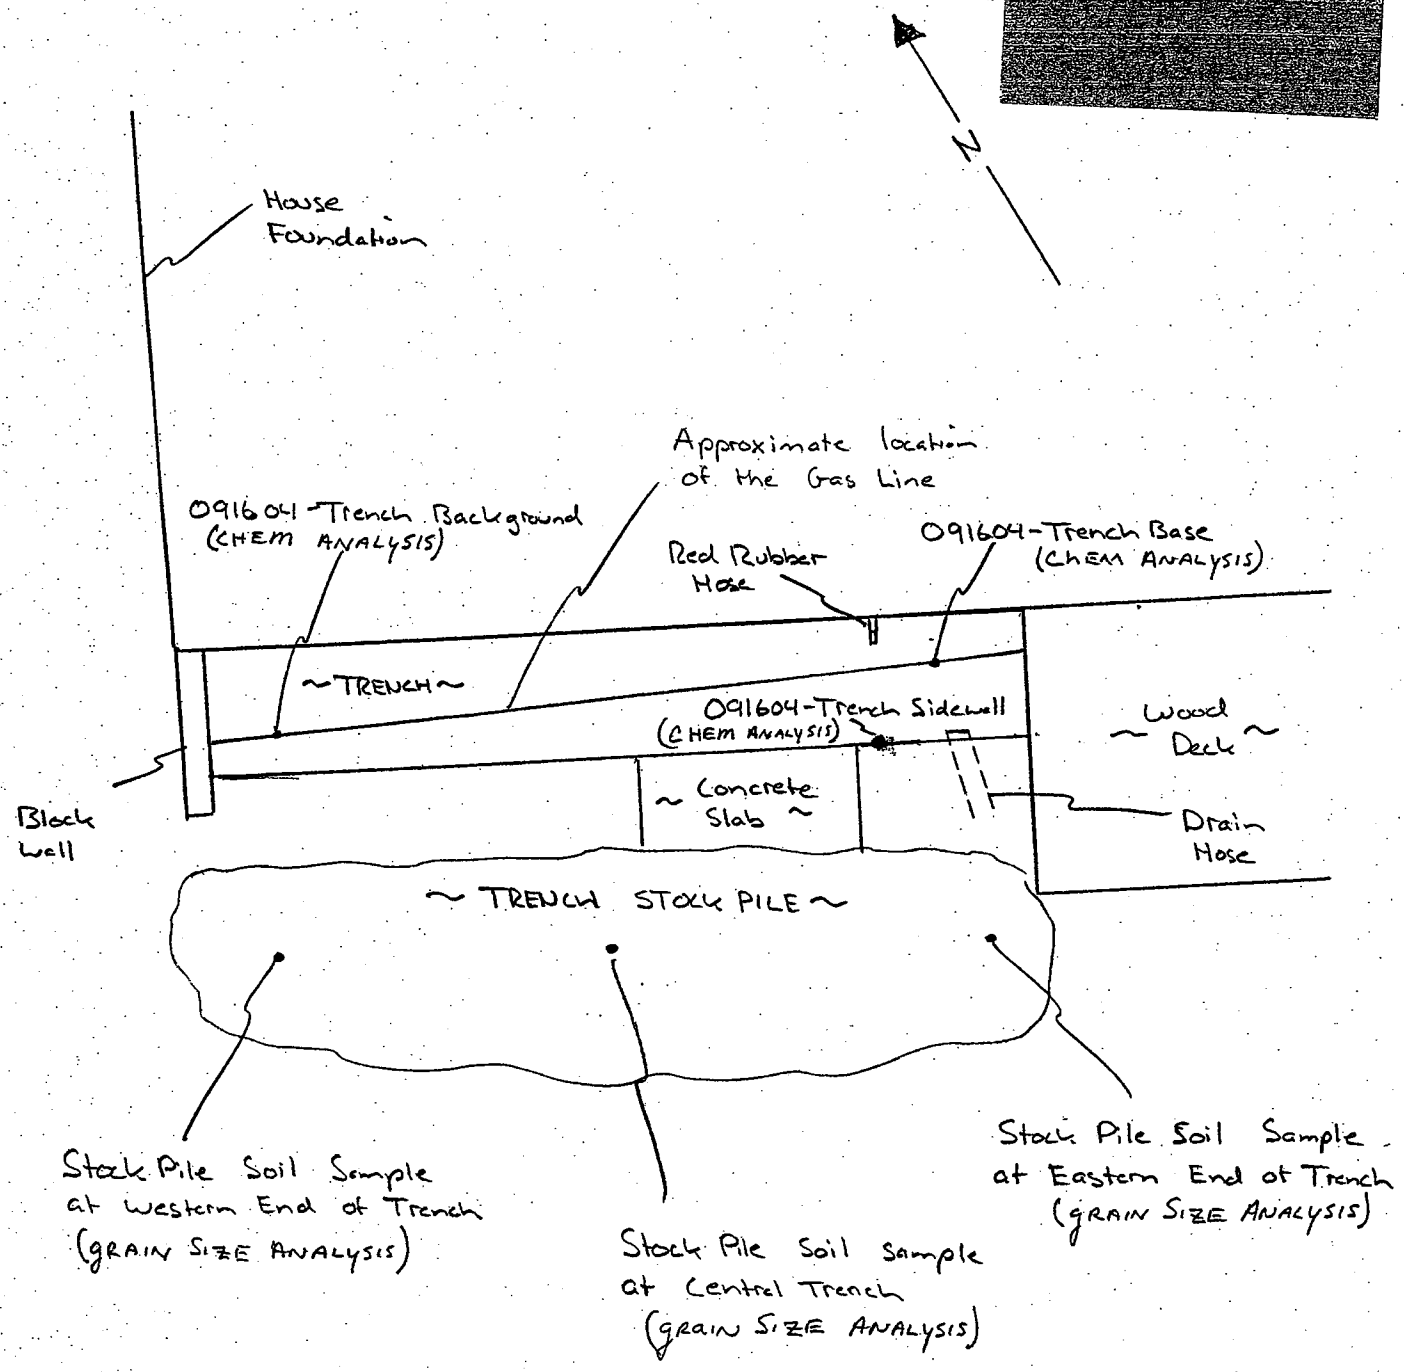 N
House
Foundation
Approximate location
of the Gas Line
091604-Trench Background
(CHEM ANALYSIS)
091604-Trench Base
(CHEM ANALYSIS)
Red Rubber
Hose
~TRENCH~
091604-Trench Sidewall
(CHEM ANALYSIS)
~ Wood
Deck ~
~ Concrete
Slab ~
Block
Wall
Drain
Hose
~ TRENCH STOCK PILE ~
Stock Pile Soil Sample
at Western End of Trench
(GRAIN SIZE ANALYSIS)
Stock Pile Soil Sample
at Central Trench
(GRAIN SIZE ANALYSIS)
Stock Pile Soil Sample
at Eastern End of Trench
(GRAIN SIZE ANALYSIS)